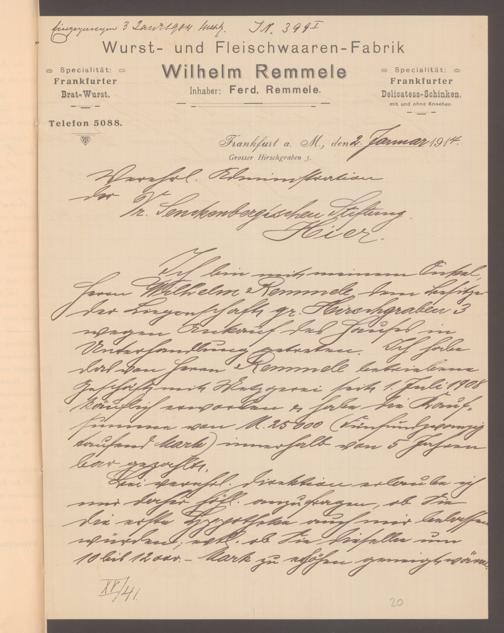 Eingegangen 3 Januar 1914 J.N. 399 I
Wurst- und Fleischwaaren-Fabrik
Wilhelm Remmele
Inhaber: Ferd. Remmele.
Specialität:
Frankfurter
Brat-Wurst.
Specialität:
Frankfurter
Delicatess-Schinken.
mit und ohne Knochen.
Telefon 5088.
Frankfurt a. M., den 2. Januar 1914.
Grosser Hirschgraben 3.
Verehrl. Administration
der Dr. Senckenbergischen Stiftung.
Hier.
Ich bin mit meinem Onkel,
Herrn Wilhelm Remmele dem Besitzer
der Liegenschaft gr. Hirschgraben 3
wegen Ankauf des Hauses in
Unterhandlung getreten. Ich habe
das von Herrn Remmele betriebene
Geschäft mit Metzgerei seit 1. Juli 1908
käuflich erworben & habe die Kauf-
summe von M. 25000 (Fünfundzwanzig
tausend Mark) innerhalb von 5 Jahren
bar gezahlt.
Bei verehrl. Direktion erlaube ich
mir daher höfl. anzufragen, ob Sie
die erste Hypotheke auch mir belassen
würden, evtl. ob Sie dieselbe um
10 bis 12000.- Mark zu erhöhen geneigt wären.
20